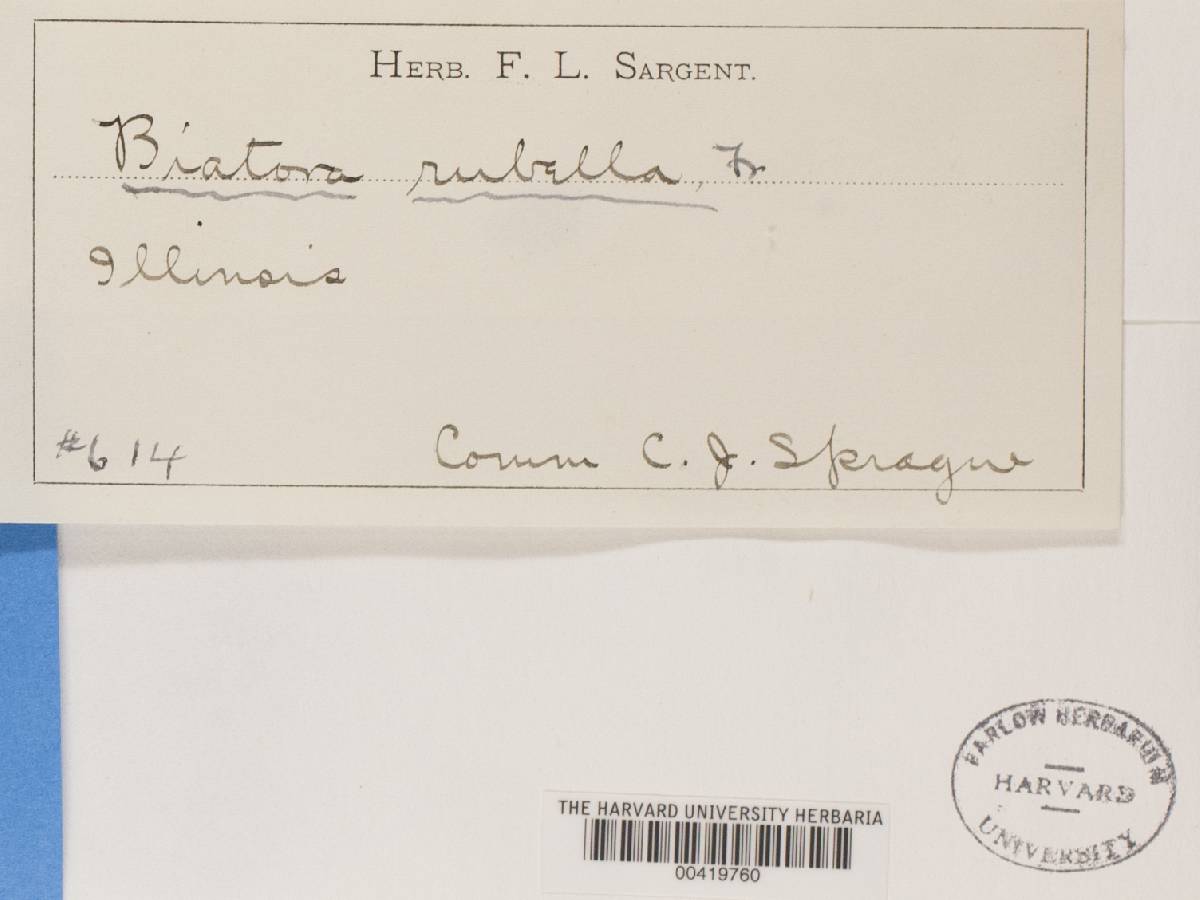 HERB. F. L. SARGENT.
Biatora rubella, Fr
Illinois
#614 Comm C. J. Sprague
THE HARVARD UNIVERSITY HERBARIA
00419760
FARLOW HERBARIUM
HARVARD
UNIVERSITY